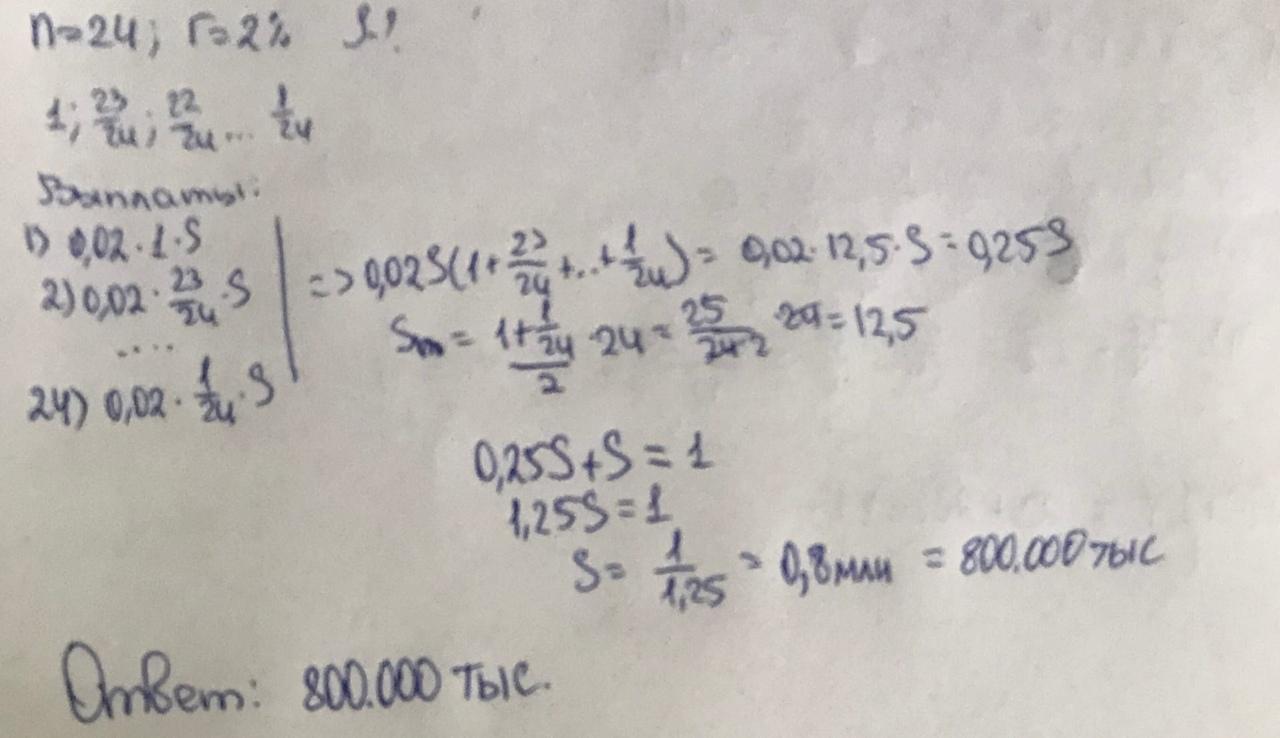 n=24; r=2% S?
1; 23/24; 22/24 ... 1/24
Выплаты:
1) 0,02 · 1 · S
2) 0,02 · 23/24 · S
....
24) 0,02 · 1/24 · S
=> 0,02S(1+23/24+...+1/24) = 0,02 · 12,5 · S = 0,25S
Sn = (1+1/24)/2 · 24 = 25/(24·2) · 24 = 12,5
0,25S+S = 1
1,25S = 1
S = 1/1,25 = 0,8 млн = 800.000 тыс
Ответ: 800.000 тыс.